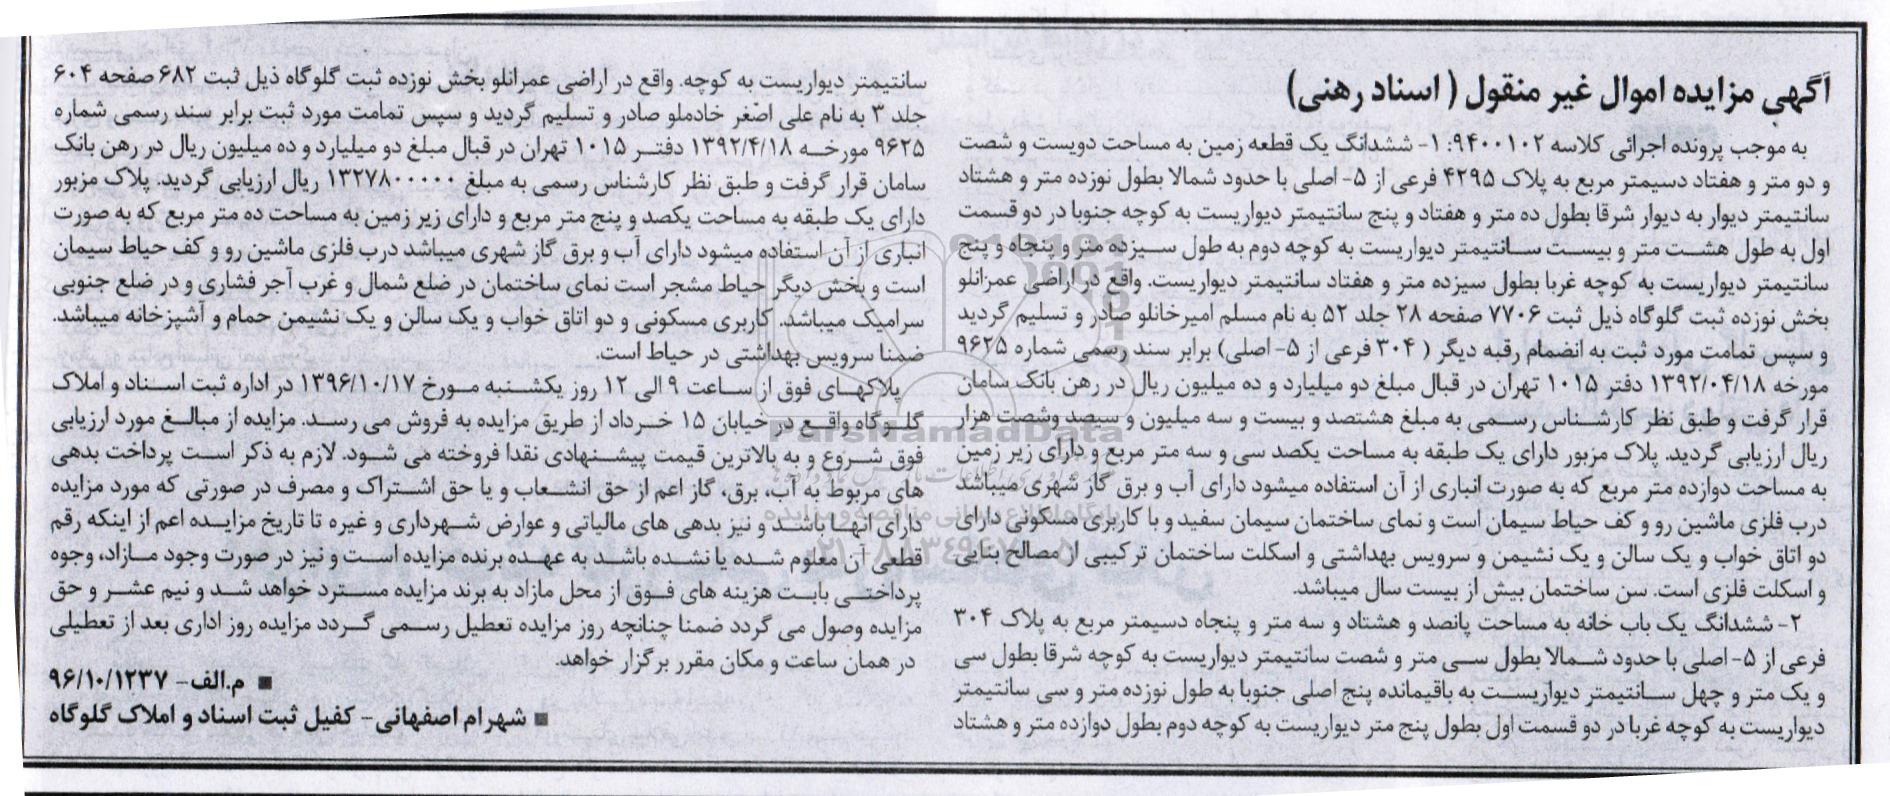 آگهی مزایده اموال غیر منقول ( اسناد رهنی)
به موجب پرونده اجرائی کلاسه ۹۴۰۰۱۰۲: ۱- ششدانگ یک قطعه زمین به مساحت دویست و شصت
و دو متر و هفتاد دسیمتر مربع به پلاک ۴۲۹۵ فرعی از ۵- اصلی با حدود شمالا بطول نوزده متر و هشتاد
سانتیمتر دیوار به دیوار شرقا بطول ده متر و هفتاد و پنج سانتیمتر دیواریست به کوچه جنوبا در دو قسمت
اول به طول هشت متر و بیست سانتیمتر دیواریست به کوچه دوم به طول سیزده متر و پنجاه و پنج
سانتیمتر دیواریست به کوچه غربا بطول سیزده متر و هفتاد سانتیمتر دیواریست. واقع در اراضی عمرانلو
بخش نوزده ثبت گلوگاه ذیل ثبت ۷۷۰۶ صفحه ۲۸ جلد ۵۲ به نام مسلم امیرخانلو صادر و تسلیم گردید
و سپس تمامت مورد ثبت به انضمام رقبه دیگر ( ۳۰۴ فرعی از ۵- اصلی) برابر سند رسمی شماره ۹۶۲۵
مورخه ۱۳۹۲/۰۴/۱۸ دفتر ۱۰۱۵ تهران در قبال مبلغ دو میلیارد و ده میلیون ریال در رهن بانک سامان
قرار گرفت و طبق نظر کارشناس رسمی به مبلغ هشتصد و بیست و سه میلیون و سیصد وشصت هزار
ریال ارزیابی گردید. پلاک مزبور دارای یک طبقه به مساحت یکصد سی و سه متر مربع و دارای زیر زمین
به مساحت دوازده متر مربع که به صورت انباری از آن استفاده میشود دارای آب و برق گاز شهری میباشد
درب فلزی ماشین رو و کف حیاط سیمان است و نمای ساختمان سیمان سفید و با کاربری مسکونی دارای
دو اتاق خواب و یک سالن و یک نشیمن و سرویس بهداشتی و اسکلت ساختمان ترکیبی از مصالح بنایی
و اسکلت فلزی است. سن ساختمان بیش از بیست سال میباشد.
۲- ششدانگ یک باب خانه به مساحت پانصد و هشتاد و سه متر و پنجاه دسیمتر مربع به پلاک ۳۰۴
فرعی از ۵- اصلی با حدود شمالا بطول سی متر و شصت سانتیمتر دیواریست به کوچه شرقا بطول سی
و یک متر و چهل سانتیمتر دیواریست به باقیمانده پنج اصلی جنوبا به طول نوزده متر و سی سانتیمتر
دیواریست به کوچه غربا در دو قسمت اول بطول پنج متر دیواریست به کوچه دوم بطول دوازده متر و هشتاد
سانتیمتر دیواریست به کوچه. واقع در اراضی عمرانلو بخش نوزده ثبت گلوگاه ذیل ثبت ۶۸۲ صفحه ۶۰۴
جلد ۳ به نام علی اصغر خادملو صادر و تسلیم گردید و سپس تمامت مورد ثبت برابر سند رسمی شماره
۹۶۲۵ مورخه ۱۳۹۲/۴/۱۸ دفتر ۱۰۱۵ تهران در قبال مبلغ دو میلیارد و ده میلیون ریال در رهن بانک
سامان قرار گرفت و طبق نظر کارشناس رسمی به مبلغ ۱۳۲۷۸۰۰۰۰۰ ریال ارزیابی گردید. پلاک مزبور
دارای یک طبقه به مساحت یکصد و پنج متر مربع و دارای زیر زمین به مساحت ده متر مربع که به صورت
انباری از آن استفاده میشود دارای آب و برق گاز شهری میباشد درب فلزی ماشین رو و کف حیاط سیمان
است و بخش دیگر حیاط مشجر است نمای ساختمان در ضلع شمال و غرب آجر فشاری و در ضلع جنوبی
سرامیک میباشد. کاربری مسکونی و دو اتاق خواب و یک سالن و یک نشیمن حمام و آشپزخانه میباشد.
ضمنا سرویس بهداشتی در حیاط است.
پلاکهای فوق از ساعت ۹ الی ۱۲ روز یکشنبه مورخ ۱۳۹۶/۱۰/۱۷ در اداره ثبت اسناد و املاک
گلوگاه واقع در خیابان ۱۵ خرداد از طریق مزایده به فروش می رسد. مزایده از مبالغ مورد ارزیابی
فوق شروع و به بالاترین قیمت پیشنهادی نقدا فروخته می شود. لازم به ذکر است پرداخت بدهی
های مربوط به آب، برق، گاز اعم از حق انشعاب و یا حق اشتراک و مصرف در صورتی که مورد مزایده
دارای انها باشد و نیز بدهی های مالیاتی و عوارض شهرداری و غیره تا تاریخ مزایده اعم از اینکه رقم
قطعی آن معلوم شده یا نشده باشد به عهده برنده مزایده است و نیز در صورت وجود مازاد، وجوه
پرداختی بابت هزینه های فوق از محل مازاد به برند مزایده مسترد خواهد شد و نیم عشر و حق
مزایده وصول می گردد ضمنا چنانچه روز مزایده تعطیل رسمی گردد مزایده روز اداری بعد از تعطیلی
در همان ساعت و مکان مقرر برگزار خواهد.
■ م.الف- ۹۶/۱۰/۱۲۳۷
■ شهرام اصفهانی- کفیل ثبت اسناد و املاک گلوگاه
ParsNamadData
پایگاه اطلاع رسانی مناقصه و مزایده